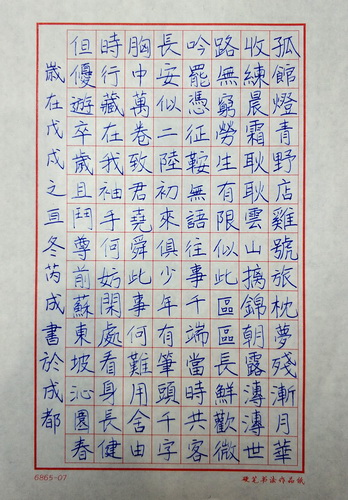 孤館燈青野店雞號旅枕夢殘漸月華
收練晨霜耿耿雲山摛錦朝露漙漙世
路無窮勞生有限似此區區長鮮歡微
吟罷憑征鞍無語往事千端當時共客
長安似二陸初來俱少年有筆頭千字
胸中萬卷致君堯舜此事何難用舍由
時行藏在我袖手何妨閑處看身長健
但優遊卒歲且鬥尊前蘇東坡沁園春
歲在戊戌之亙冬芮成書於成都
6865-07
硬笔书法作品纸